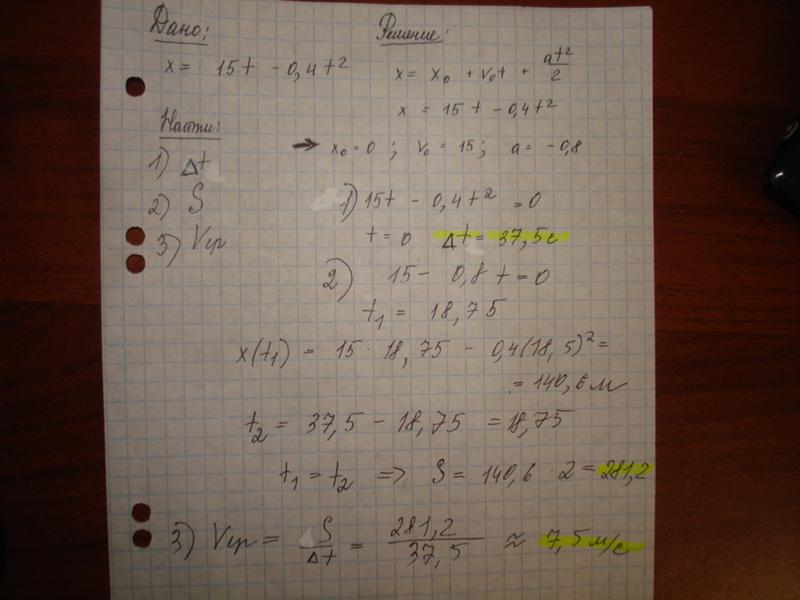 Дано:
x = 15t - 0,4t²
Найти:
1) Δt
2) S
3) Vср
Решение:
x = x₀ + v₀t + at²/2
x = 15t - 0,4t²
→ x₀ = 0 ; v₀ = 15 ; a = -0,8
1) 15t - 0,4t² = 0
t = 0 Δt = 37,5с
2) 15 - 0,8t = 0
t₁ = 18,75
x(t₁) = 15 · 18,75 - 0,4(18,5)² =
= 140,6 м
t₂ = 37,5 - 18,75 = 18,75
t₁ = t₂ => S = 140,6 · 2 = 281,2
3) Vср = S/Δt = 281,2/37,5 ≈ 7,5 м/с